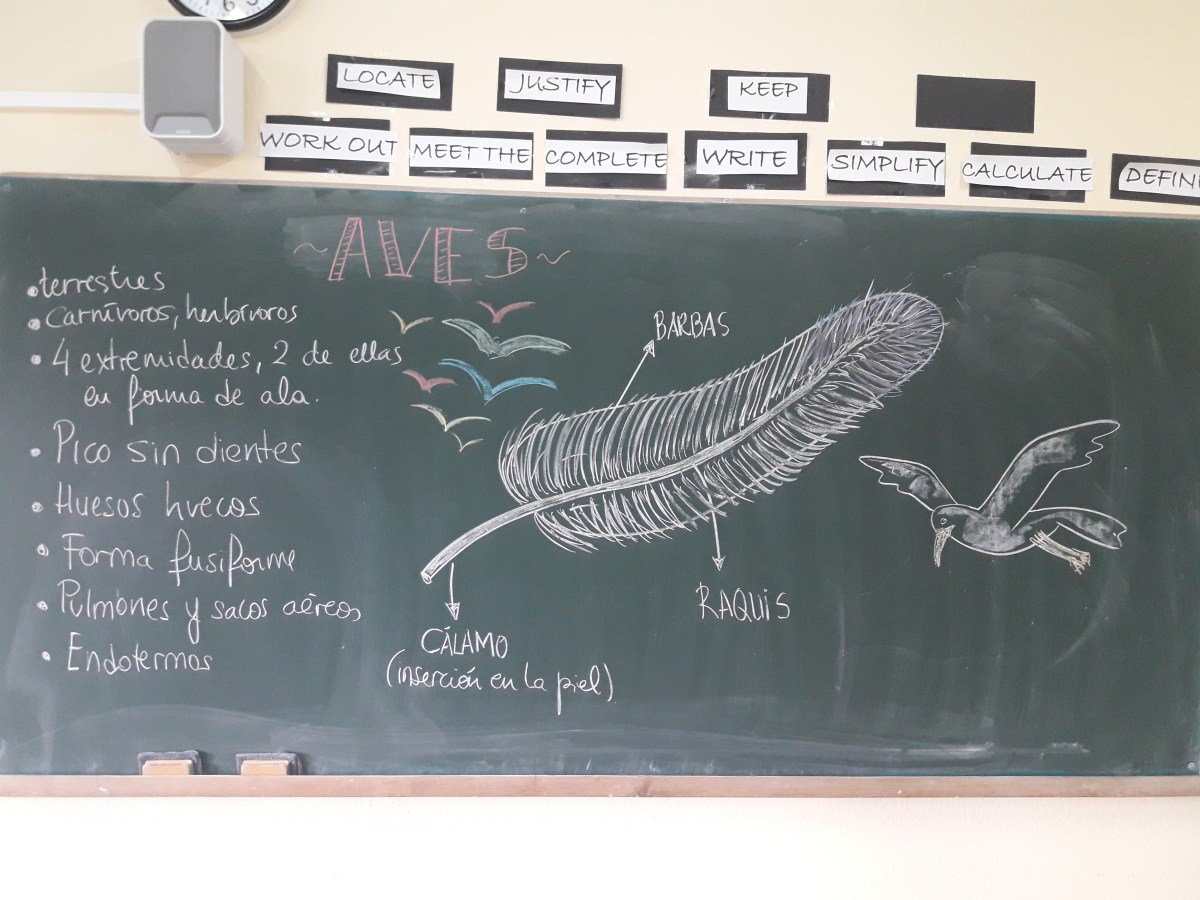 LOCATE
JUSTIFY
KEEP
WORK OUT
MEET THE
COMPLETE
WRITE
SIMPLIFY
CALCULATE
DEFIN
~AVES~
• terrestres
• Carnívoros, herbívoros
• 4 extremidades, 2 de ellas
en forma de ala.
• Pico sin dientes
• Huesos huecos
• Forma fusiforme
• Pulmones y sacos aéreos
• Endotermos
BARBAS
RAQUIS
CÁLAMO
(inserción en la piel)